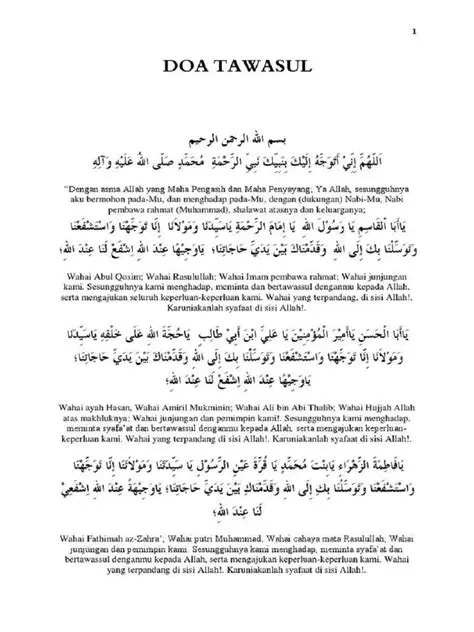 1
DOA TAWASUL
بسم الله الرحمن الرحيم
اَللّٰهُمَّ إِنِّيْ أَتَوَجَّهُ إِلَيْكَ بِنَبِيِّكَ نَبِيِّ الرَّحْمَةِ مُحَمَّدٍ صَلَّى اللهُ عَلَيْهِ وَآلِهِ
"Dengan asma Allah yang Maha Pengasih dan Maha Penyayang; Ya Allah, sesungguhnya
aku bermohon pada-Mu, dan menghadap pada-Mu, dengan (dukungan) Nabi-Mu, Nabi
pembawa rahmat (Muhammad), shalawat atasnya dan keluarganya;
يَاأَبَا الْقَاسِمِ يَا رَسُوْلَ اللهِ يَا إِمَامَ الرَّحْمَةِ يَاسَيِّدَنَا وَمَوْلَانَا إِنَّا تَوَجَّهْنَا وَاسْتَشْفَعْنَا
وَتَوَسَّلْنَا بِكَ إِلَى اللهِ وَقَدَّمْنَاكَ بَيْنَ يَدَيْ حَاجَاتِنَا؛ يَاوَجِيْهًا عِنْدَ اللهِ اِشْفَعْ لَنَا عِنْدَ اللهِ؛
Wahai Abul Qosim; Wahai Rasulullah; Wahai Imam pembawa rahmat; Wahai junjungan
kami. Sesungguhnya kami menghadap, meminta dan bertawassul denganmu kepada Allah,
serta mengajukan seluruh keperluan-keperluan kami. Wahai yang terpandang, di sisi Allah!.
Karuniakanlah syafaat di sisi Allah!.
يَاأَبَا الْحَسَنِ يَاأَمِيْرَ الْمُؤْمِنِيْنَ يَا عَلِيَّ ابْنَ أَبِيْ طَالِبٍ يَاحُجَّةَ اللهِ عَلَى خَلْقِهِ يَاسَيِّدَنَا
وَمَوْلَانَا إِنَّا تَوَجَّهْنَا وَاسْتَشْفَعْنَا وَتَوَسَّلْنَا بِكَ إِلَى اللهِ وَقَدَّمْنَاكَ بَيْنَ يَدَيْ حَاجَاتِنَا؛
يَاوَجِيْهًا عِنْدَ اللهِ اِشْفَعْ لَنَا عِنْدَ اللهِ؛
Wahai ayah Hasan, Wahai Amiril Mukminin; Wahai Ali bin Abi Thalib; Wahai Hujjah Allah
atas makhluknya; Wahai junjungan dan pemimpin kami!. Sesungguhnya kami menghadap,
meminta syafa'at dan bertawassul denganmu kepada Allah, serta mengajukan keperluan-
keperluan kami. Wahai yang terpandang di sisi Allah!. Karuniakanlah syafaat di sisi Allah!.
يَافَاطِمَةَ الزَّهْرَاءِ يَابِنْتَ مُحَمَّدٍ يَا قُرَّةَ عَيْنِ الرَّسُوْلِ يَا سَيِّدَتَنَا وَمَوْلَاتَنَا إِنَّا تَوَجَّهْنَا
وَاسْتَشْفَعْنَا وَتَوَسَّلْنَا بِكِ إِلَى اللهِ وَقَدَّمْنَاكِ بَيْنَ يَدَيْ حَاجَاتِنَا؛ يَاوَجِيْهَةً عِنْدَ اللهِ اِشْفَعِيْ
لَنَا عِنْدَ اللهِ؛
Wahai Fathimah az-Zahra'; Wahai putri Muhammad, Wahai cahaya mata Rasulullah; Wahai
junjungan dan pemimpin kami. Sesungguhnya kami menghadap, meminta syafa'at dan
bertawassul denganmu kepada Allah, serta mengajukan keperluan-keperluan kami. Wahai
yang terpandang di sisi Allah!. Karuniakanlah syafaat di sisi Allah!.